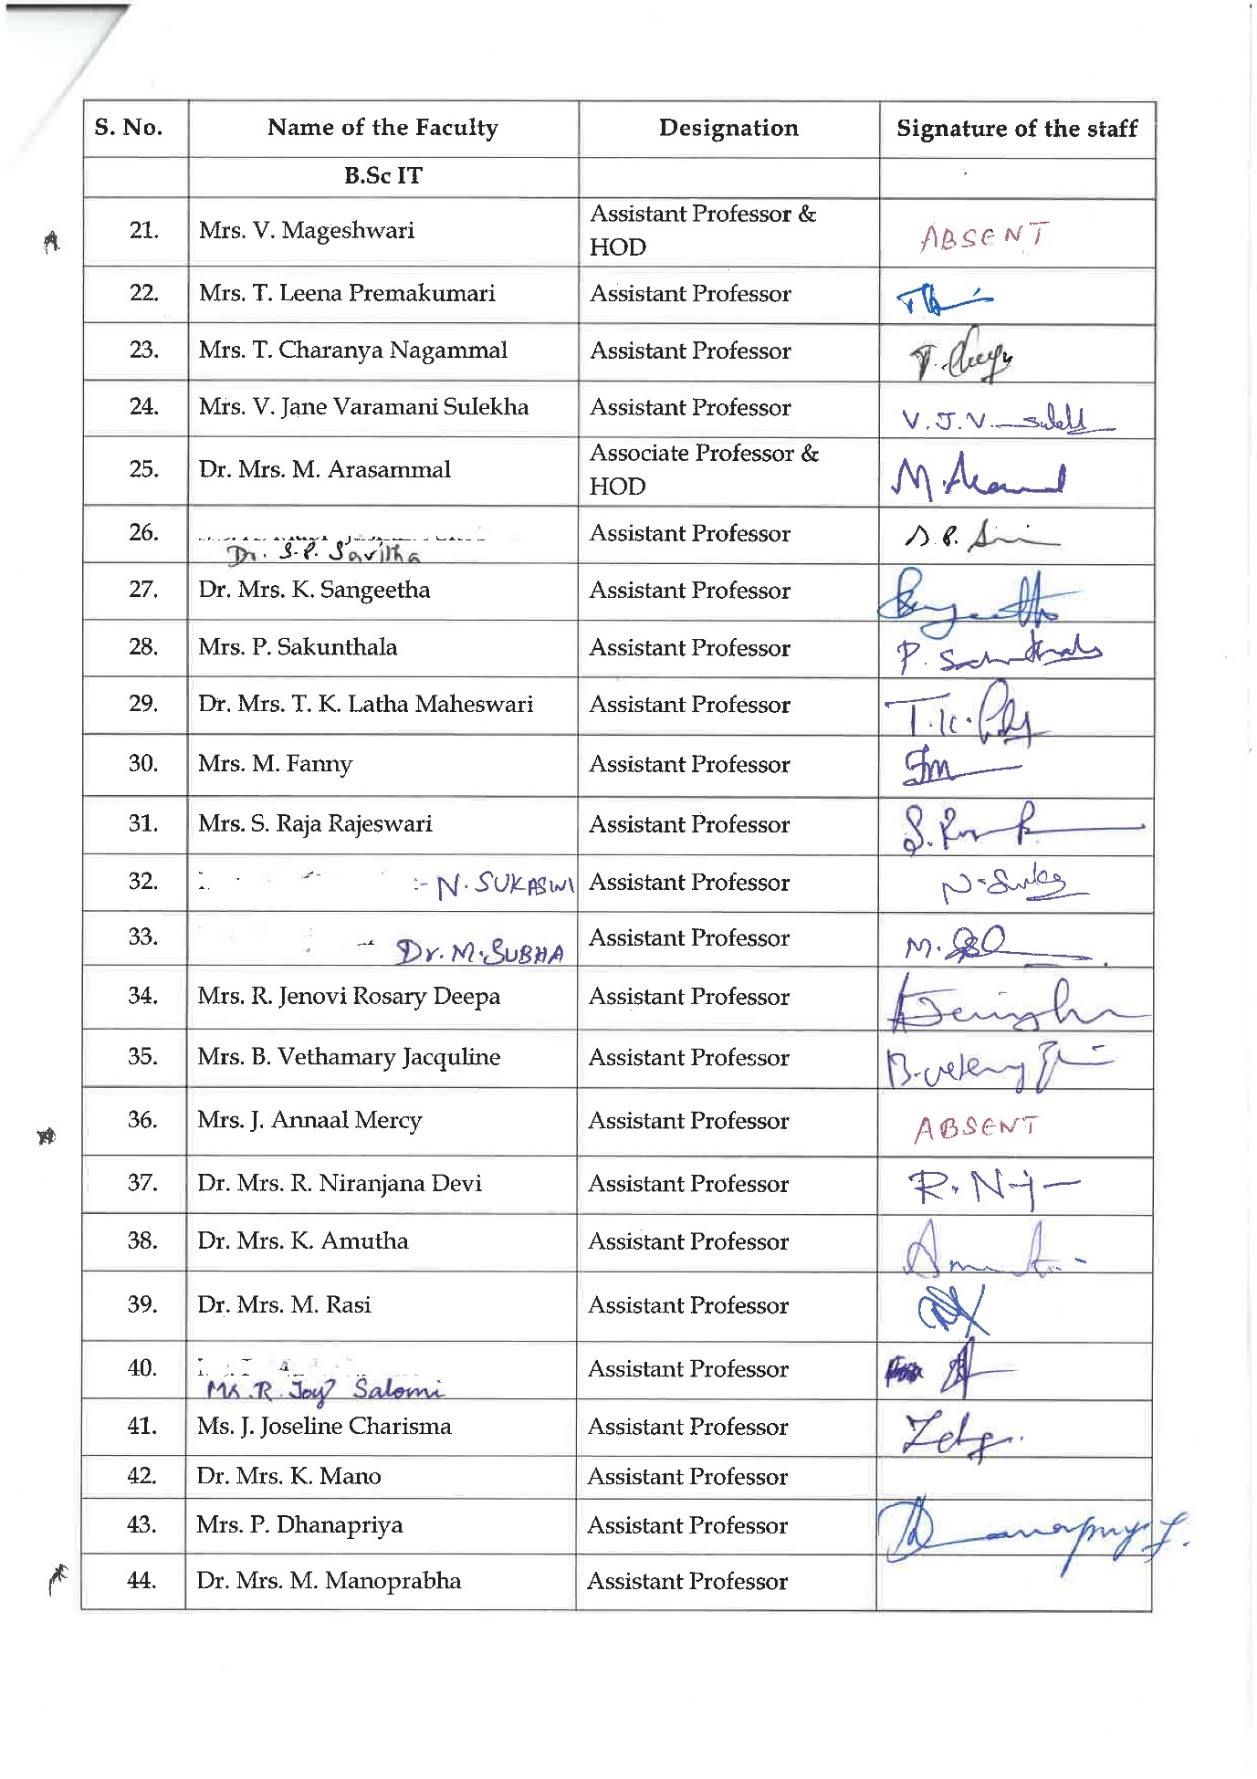 S. No. Name of the Faculty Designation Signature of the staff
B.Sc IT
21. Mrs. V. Mageshwari Assistant Professor & HOD ABSENT
22. Mrs. T. Leena Premakumari Assistant Professor
23. Mrs. T. Charanya Nagammal Assistant Professor
24. Mrs. V. Jane Varamani Sulekha Assistant Professor V.J.V.
25. Dr. Mrs. M. Arasammal Associate Professor & HOD
26. Dr. S.P. Savitha Assistant Professor
27. Dr. Mrs. K. Sangeetha Assistant Professor
28. Mrs. P. Sakunthala Assistant Professor
29. Dr. Mrs. T. K. Latha Maheswari Assistant Professor
30. Mrs. M. Fanny Assistant Professor
31. Mrs. S. Raja Rajeswari Assistant Professor
32. N. SUKASWI Assistant Professor
33. Dr. M. SUBHA Assistant Professor
34. Mrs. R. Jenovi Rosary Deepa Assistant Professor
35. Mrs. B. Vethamary Jacquline Assistant Professor
36. Mrs. J. Annaal Mercy Assistant Professor ABSENT
37. Dr. Mrs. R. Niranjana Devi Assistant Professor
38. Dr. Mrs. K. Amutha Assistant Professor
39. Dr. Mrs. M. Rasi Assistant Professor
40. Ms. R. Joy Salomi Assistant Professor
41. Ms. J. Joseline Charisma Assistant Professor
42. Dr. Mrs. K. Mano Assistant Professor
43. Mrs. P. Dhanapriya Assistant Professor
44. Dr. Mrs. M. Manoprabha Assistant Professor